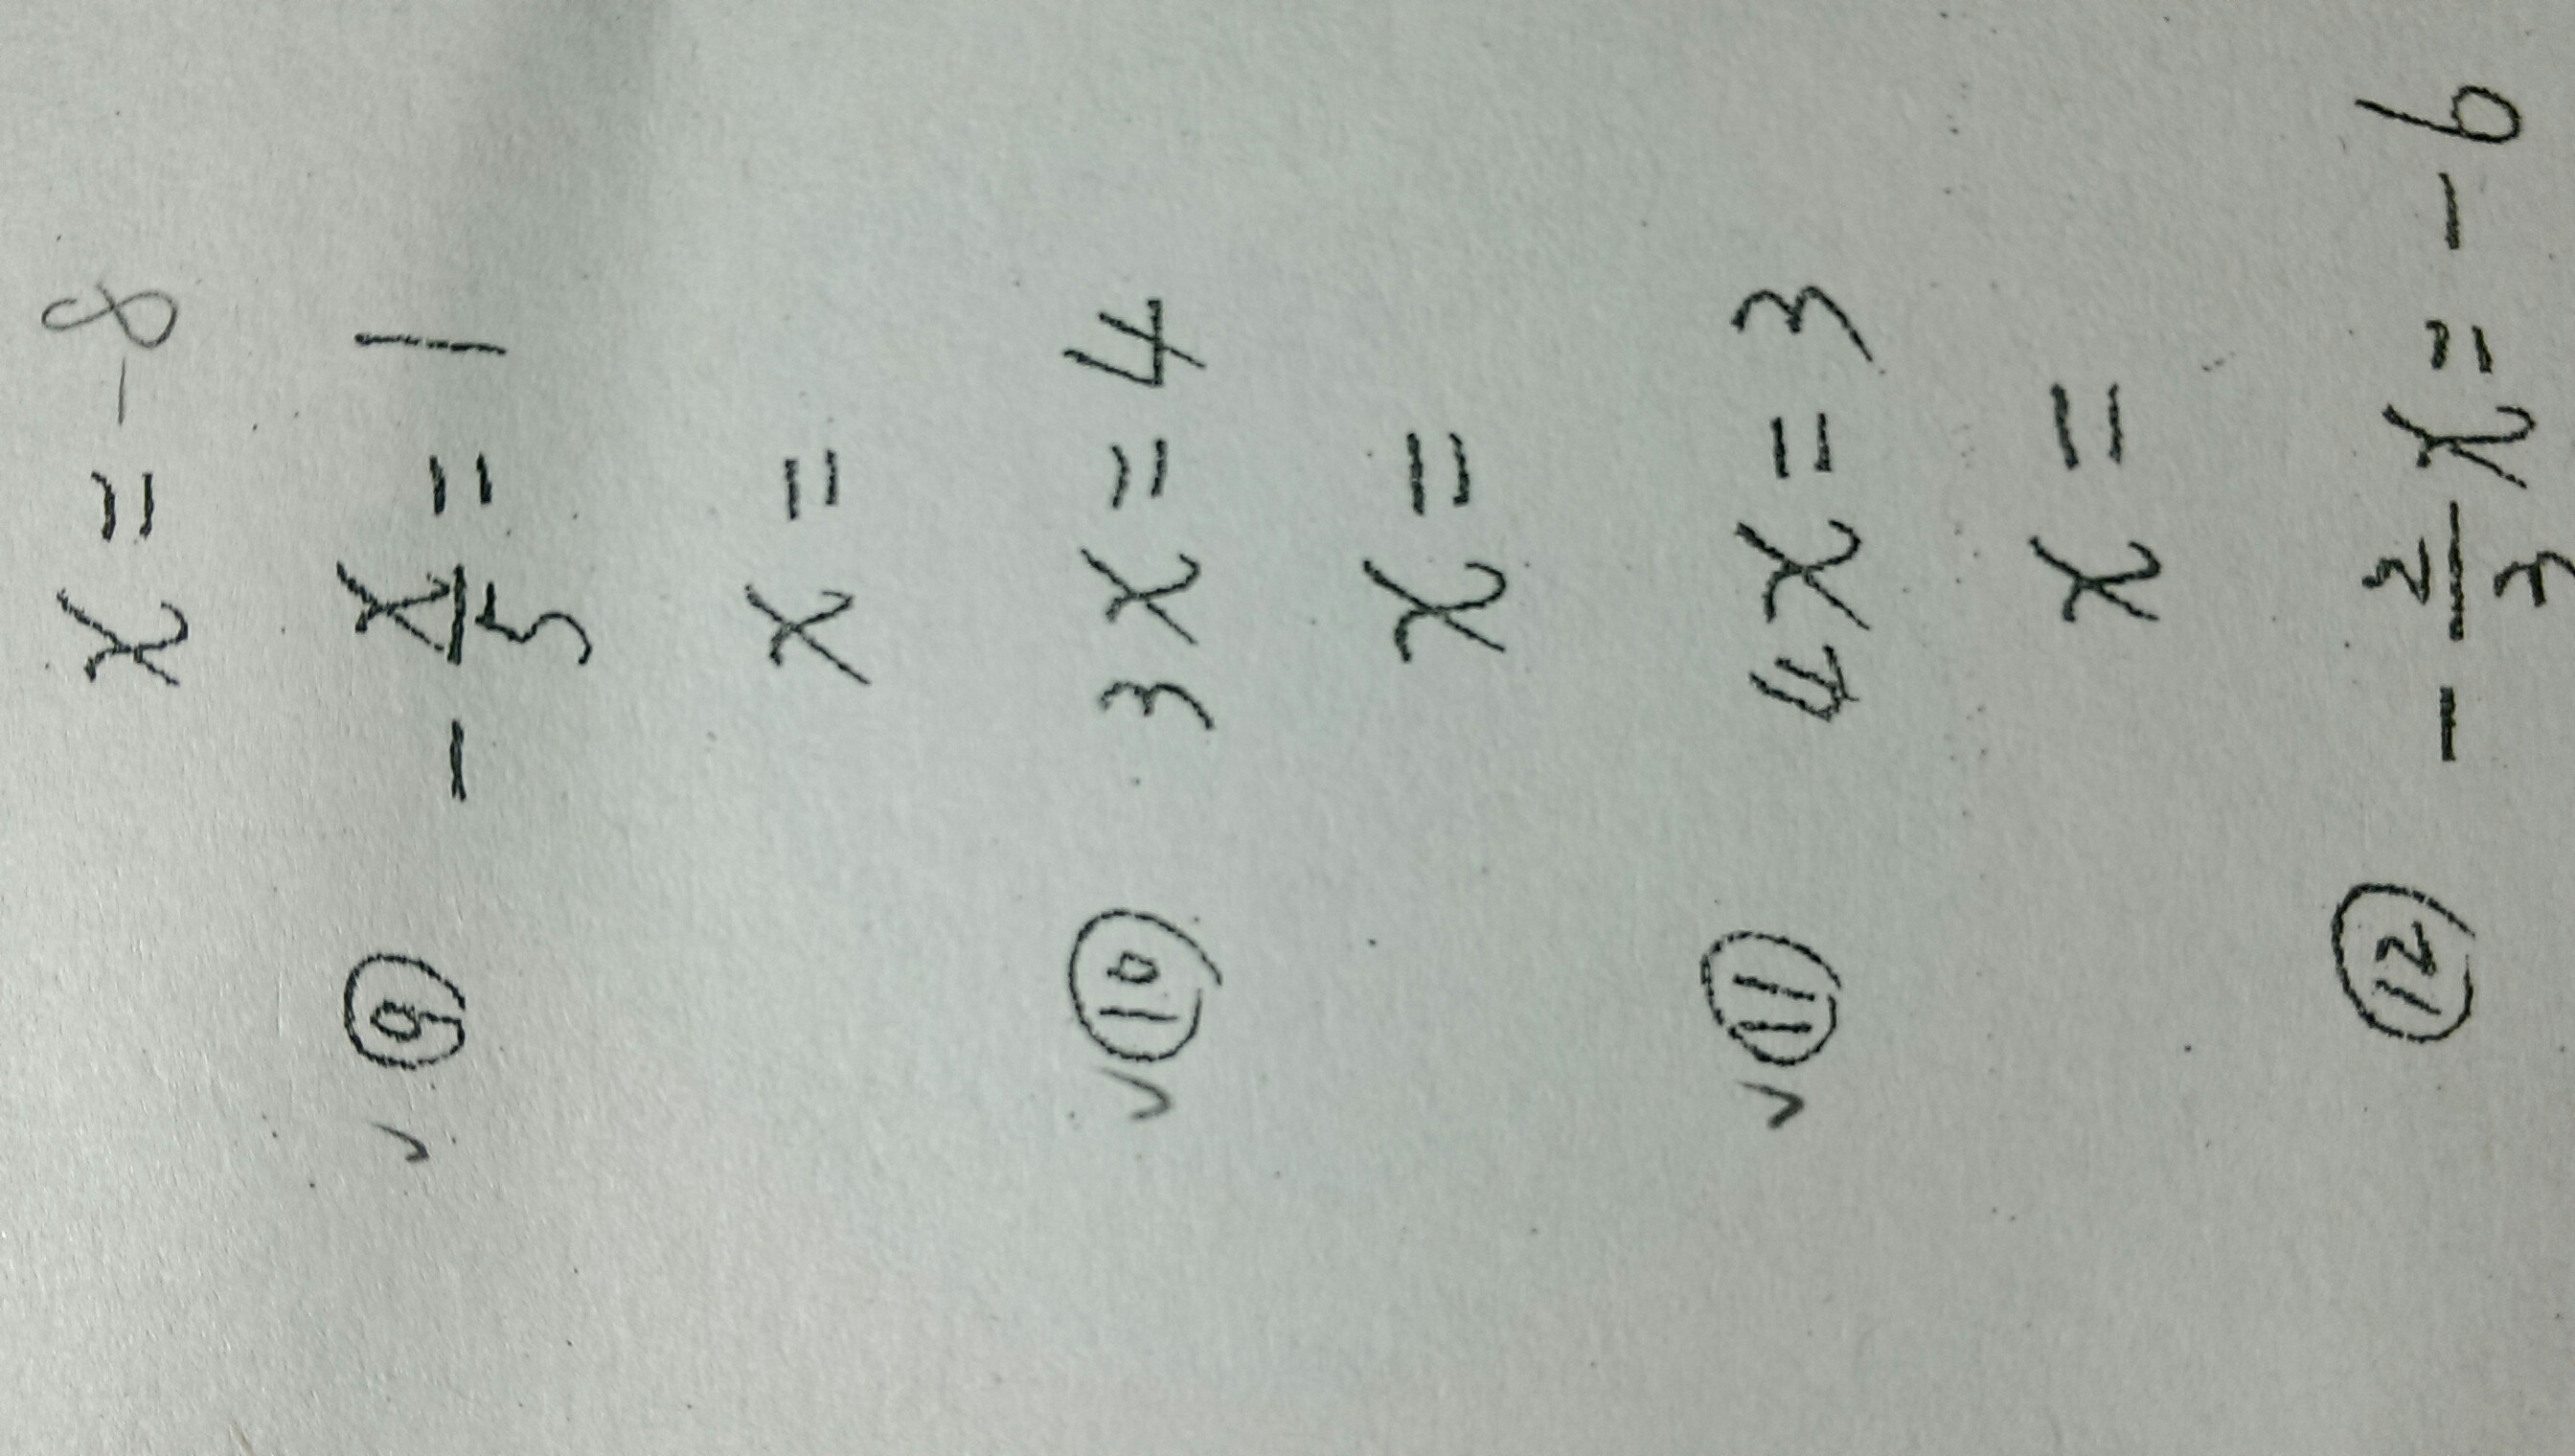 x = -8
✓ ⑨ - x/5 = 1
x =
✓ ⑩ 3x = 4
x =
✓ ⑪ 4x = 3
x =
⑫ - 2/3 x = -6